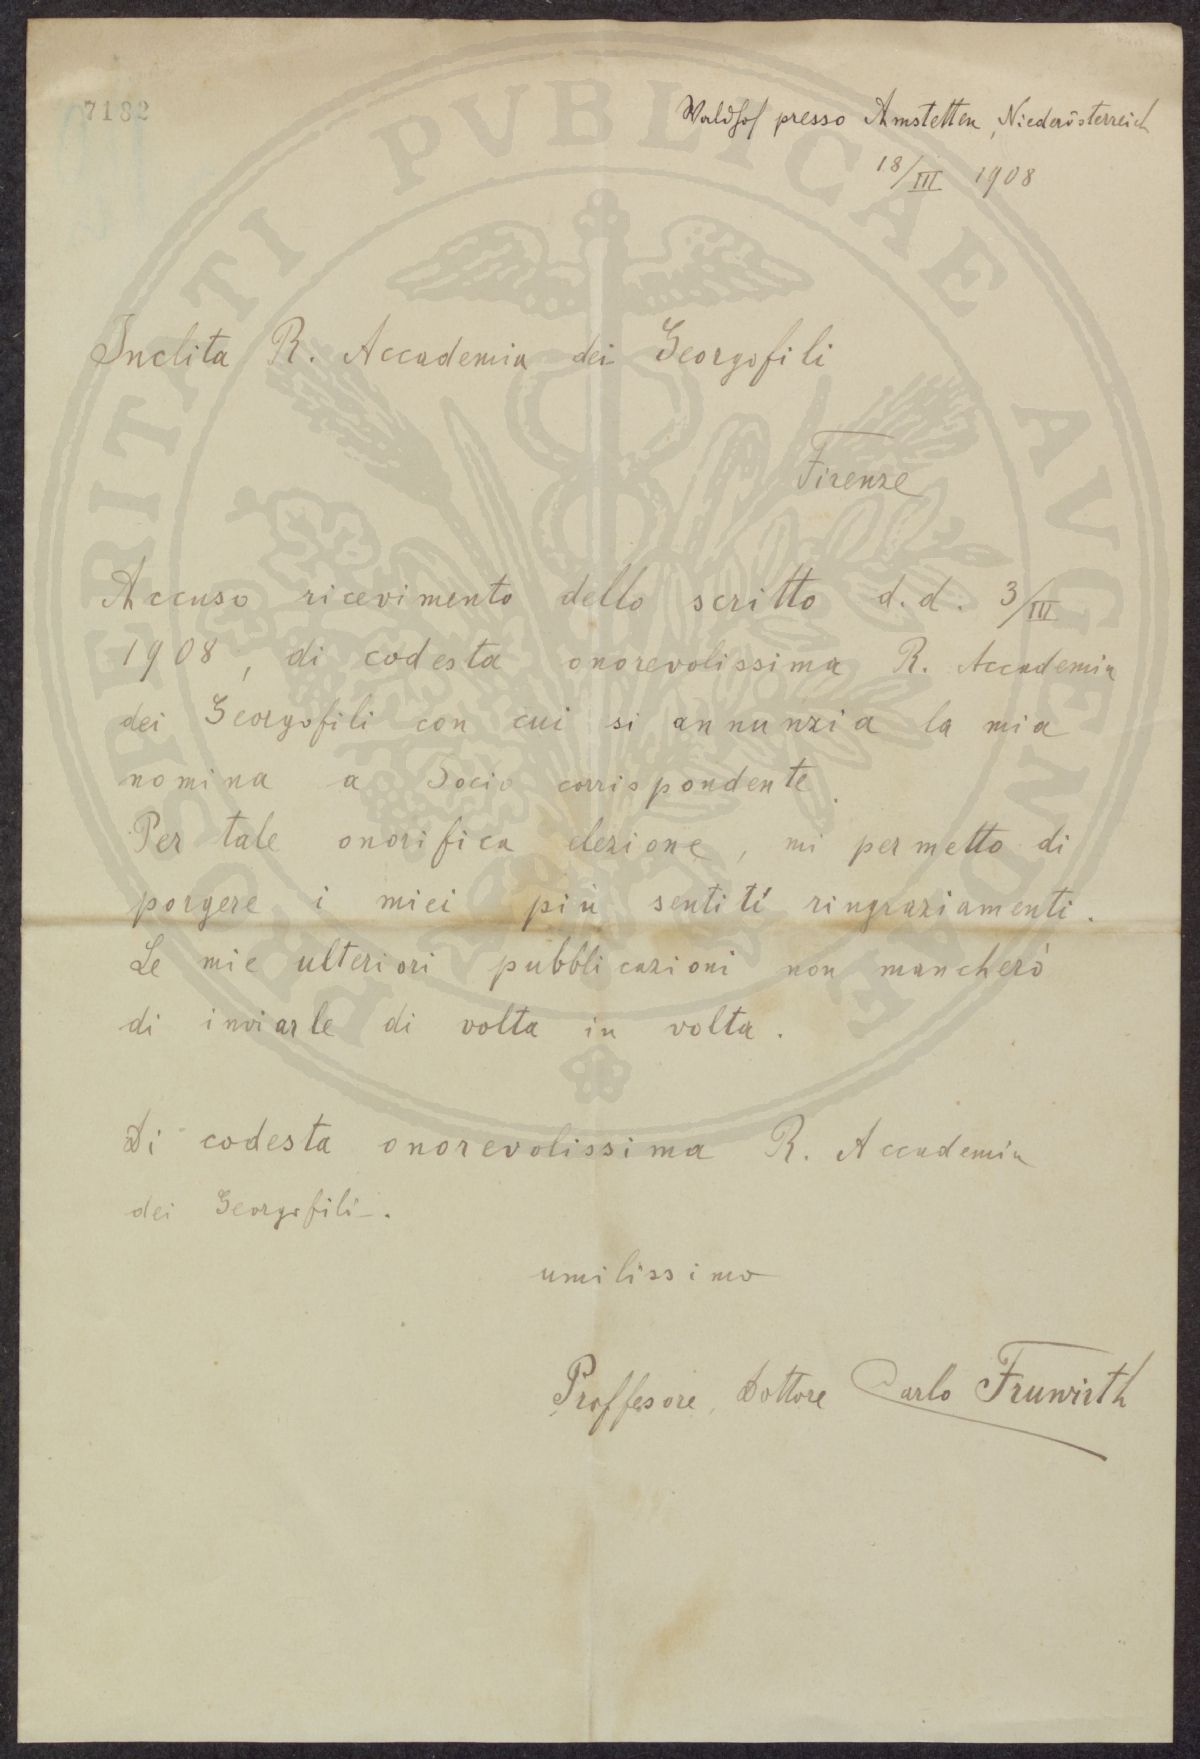 7182
Waldhof presso Amstetten, Niederösterreich
18/III 1908
Inclita R. Accademia dei Georgofili
Firenze
Accuso ricevimento dello scritto d.d. 3/III
1908, di codesta onorevolissima R. Accademia
dei Georgofili con cui si annunzia la mia
nomina a Socio corrispondente.
Per tale onorifica elezione, mi permetto di
porgere i miei più sentiti ringraziamenti.
Le mie ulteriori pubblicazioni non mancherò
di inviarle di volta in volta.
Di codesta onorevolissima R. Accademia
dei Georgofili.
umilissimo
Proffesore, Dottore Carlo Fruwirth
PROSPERITATI PVBLICAE AVGENDAE